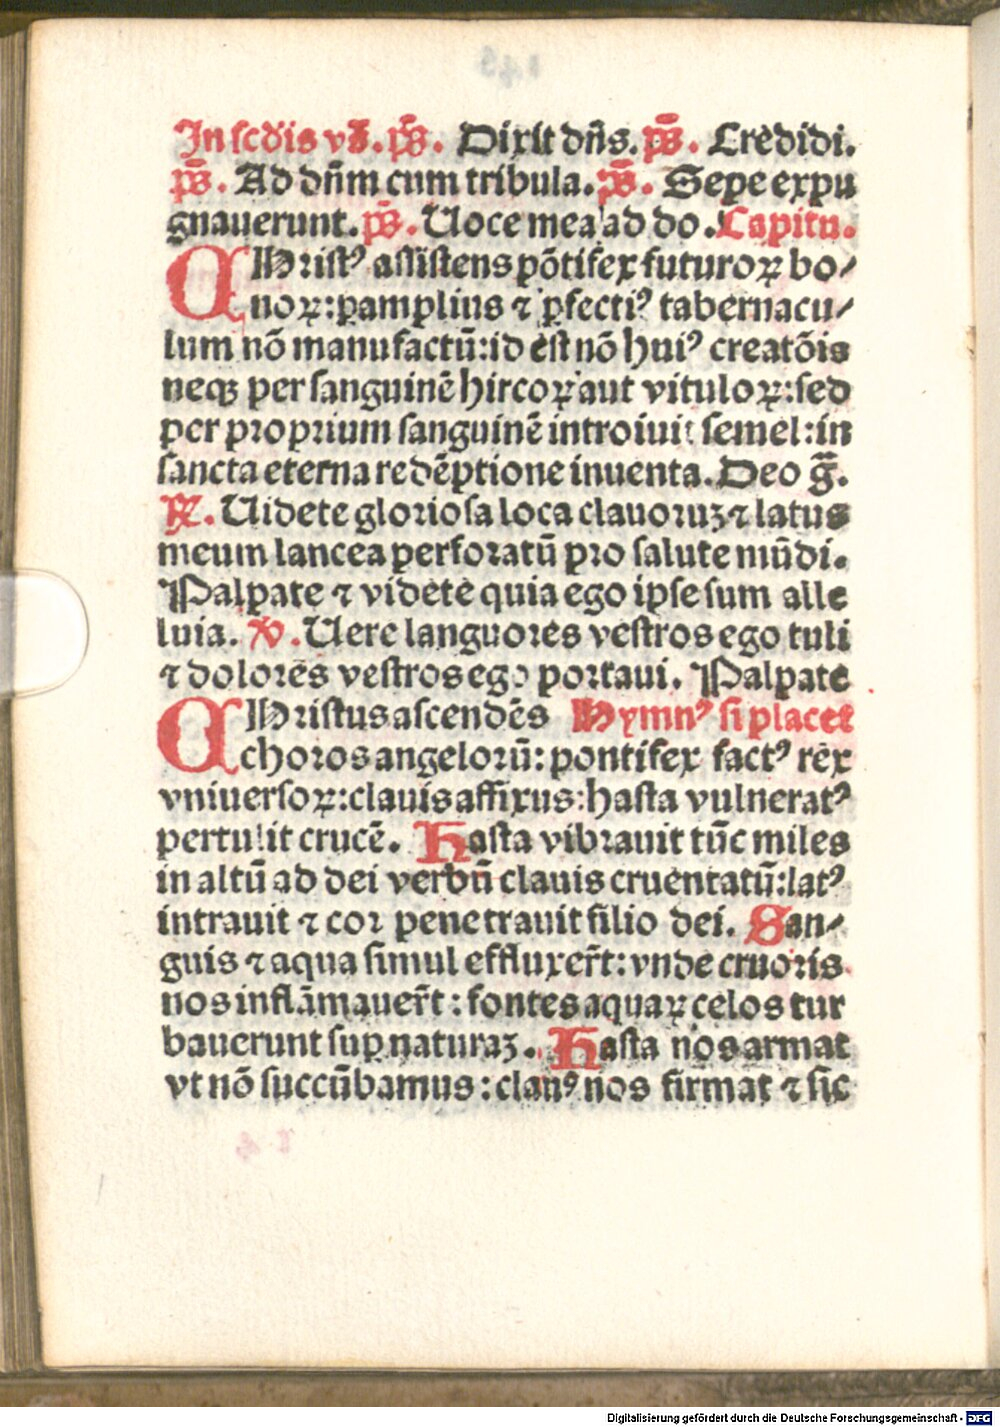 In scd̄is vꝫ. ps̄. Dixit dn̄s. ps̄. Credidi.
ps̄. Ad dn̄m cum tribula. ps̄. Sepe expu
gnauerunt. ps̄. Uoce mea ad do. Capitu.
CHristꝰ assistens põtifex futuroꝝ bo⸗
noꝝ: ꝑ amplius ⁊ ꝑfectiꝰ tabernacu⸗
lum nõ manufactū: id est nõ huiꝰ creatõis
neqꝫ per sanguinē hircoꝝ aut vituloꝝ: sed
per proprium sanguinē introiuit semel: in
sancta eterna redēptione inuenta. Deo g̅.
℟. Uidete gloriosa loca clauoruꝫ ⁊ latus
meum lancea perforatū pro salute mūdi.
Palpate ⁊ videte quia ego ipse sum alle
luia. ℣. Uere languores vestros ego tuli
⁊ dolores vestros ego portaui. Palpate
CHristus ascendēs Hymnꝰ si placet
choros angelorū: pontifex factꝰ rex
vniuersoꝝ: clauis affixus: hasta vulneratꝰ
pertulit crucē. Hasta vibrauit tūc miles
in altū ad dei verbū clauis cruentatū: latꝰ
intrauit ⁊ cor penetrauit filio dei. San⸗
guis ⁊ aqua simul effluxer̄t: vnde cruoris
nos inflāmauer̄t: fontes aquaꝝ celos tur
bauerunt suꝑ naturaꝫ. Hasta nos armat
vt nõ succūbamus: clauꝰ nos firmat ⁊ sic
Digitalisierung gefördert durch die Deutsche Forschungsgemeinschaft - DFG